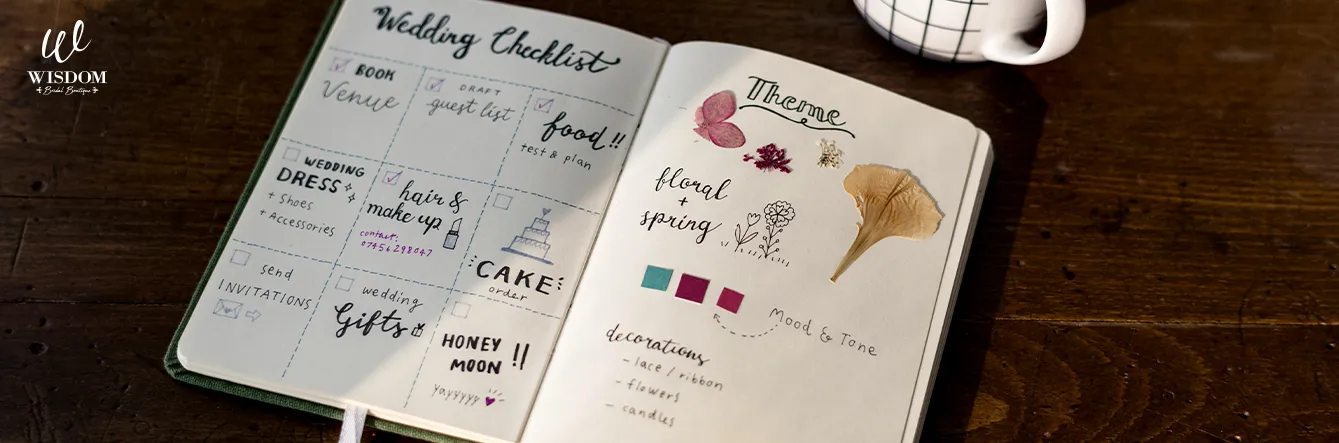 W
WISDOM
Bridal Boutique
Wedding Checklist
BOOK
Venue
DRAFT
guest list
food!!
test & plan
WEDDING
DRESS
+ Shoes
+ Accessories
hair &
make up
contact:
07456298047
CAKE
order
send
INVITATIONS
wedding
Gifts
HONEY
MOON !!
yayyyyy
Theme
floral
+
spring
Mood & Tone
decorations
- lace / ribbon
- flowers
- candles